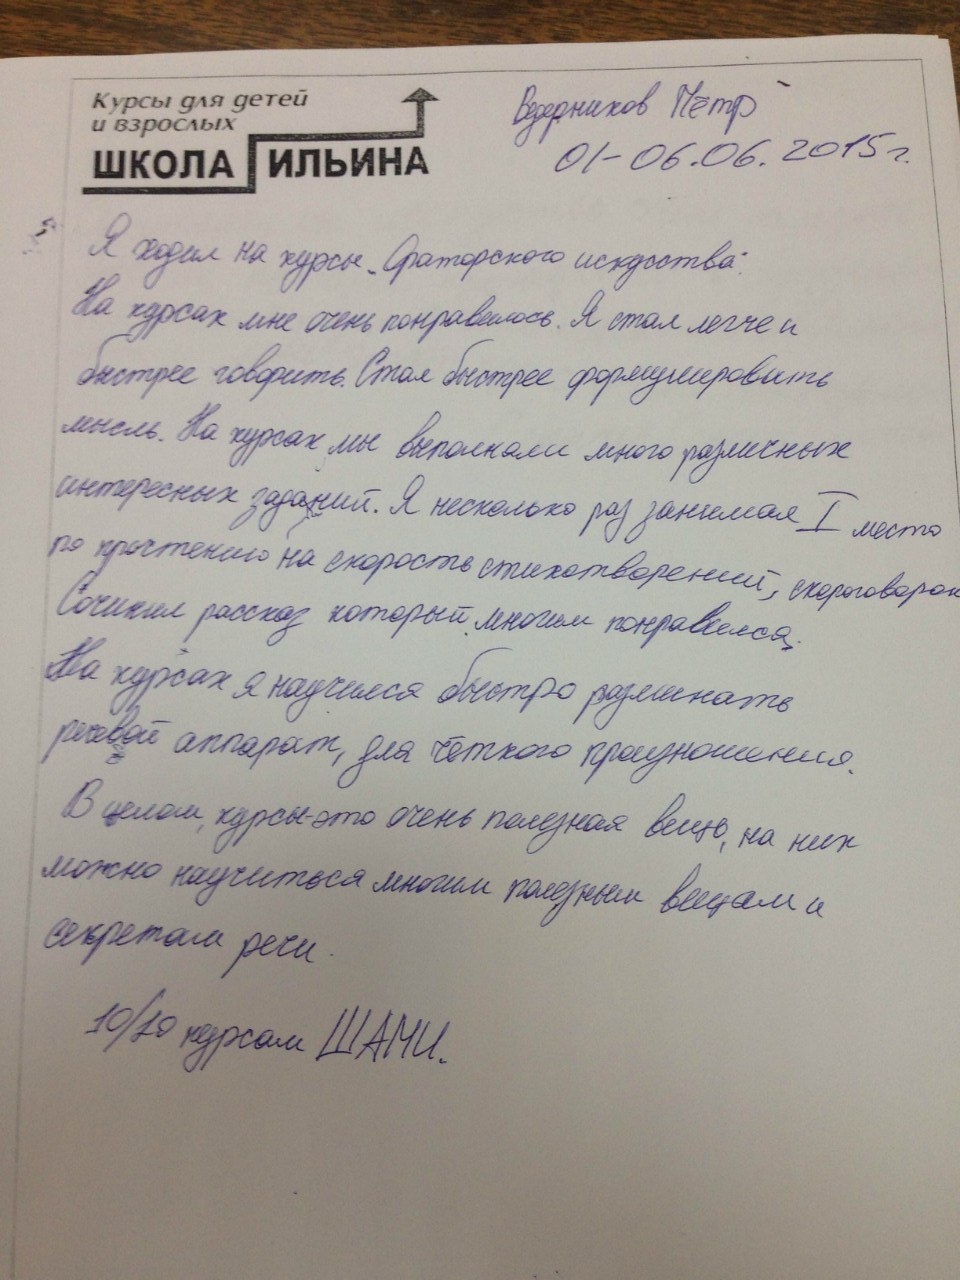 Курсы для детей
и взрослых
ШКОЛА ИЛЬИНА
Ведерников Пётр
01-06.06.2015г.
Я ходил на курсы „Ораторского искусства"
На курсах мне очень понравилось. Я стал легче и
быстрее говорить. Стал быстрее формулировать
мысль. На курсах мы выполняли много различных
интересных заданий. Я несколько раз занимал I место
по прочтению на скорость стихотворений, скороговорок
Сочинил рассказ который многим понравился.
На курсах я научился быстро разминать
речевой аппарат, для чёткого произношения.
В целом, курсы-это очень полезная вещь, на них
можно научиться многим полезным вещам и
секретам речи.
10/10 курсам ШАМИ.